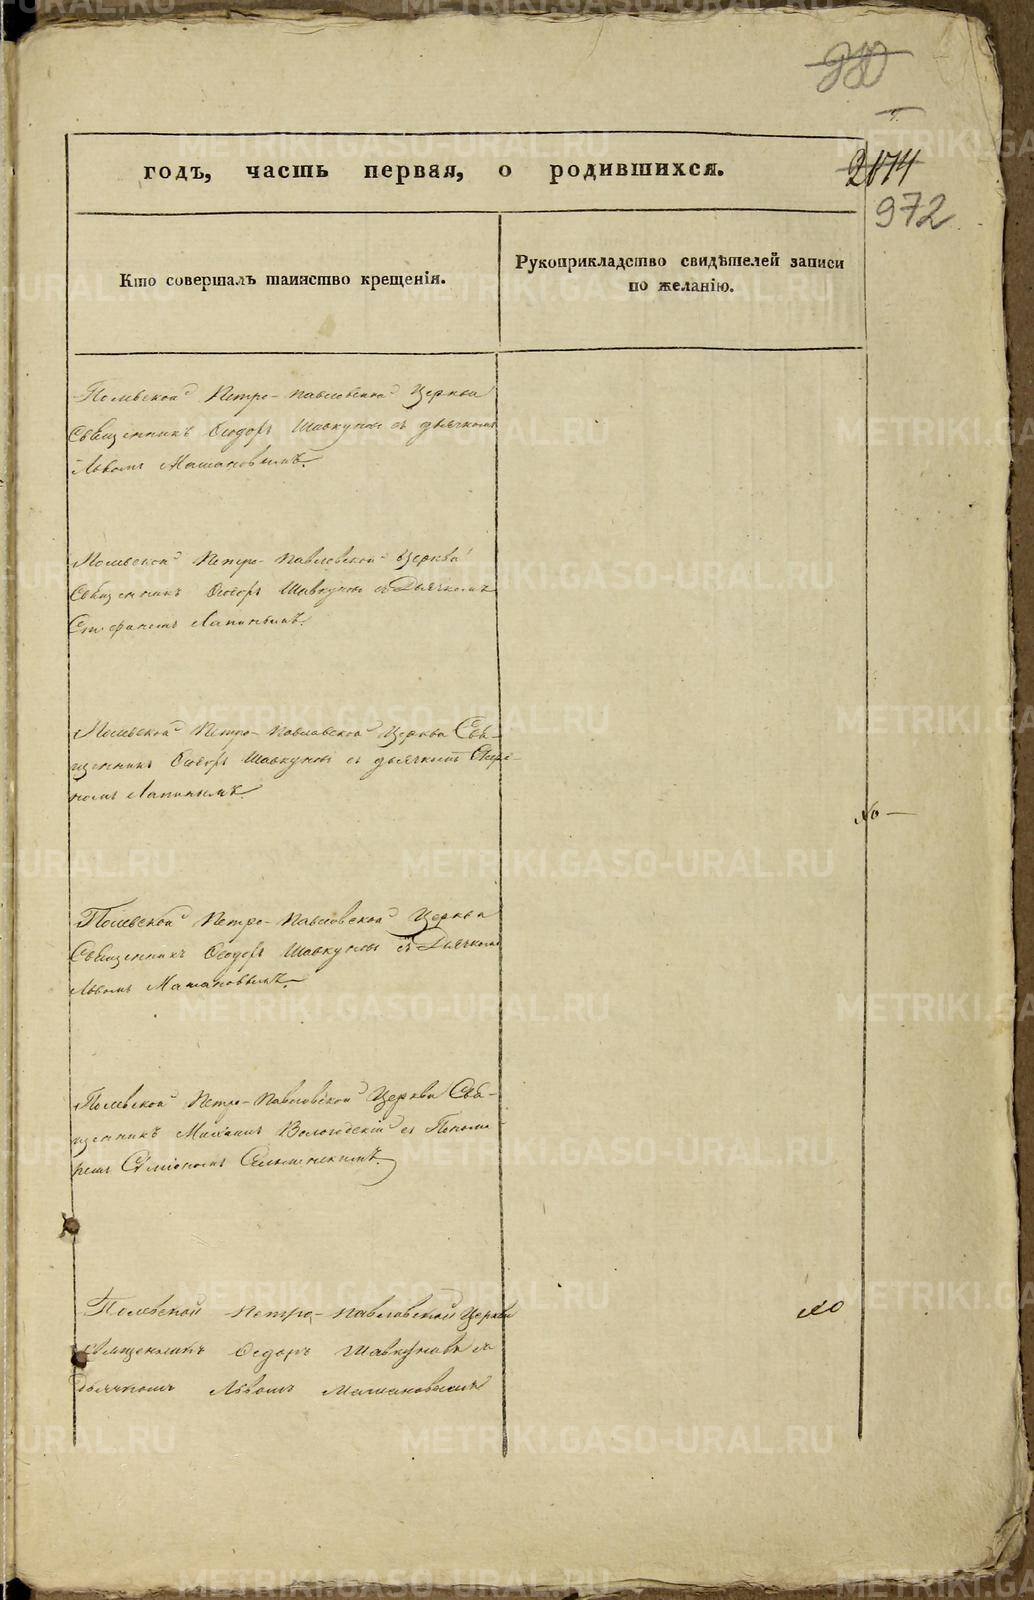 980
2014
972
годъ, часть первая, о родившихся.
Кто совершалъ таинство крещенія.
Рукоприкладство свидѣтелей записи
по желанію.
Полевской Петро-Павловской Церкви
Священникъ Ѳеодоръ Шавкуновъ съ дьячкомъ
Львомъ Машановымъ.
Полевской Петро-Павловской Церкви
Священникъ Ѳеодоръ Шавкуновъ съ Дьячкомъ
Стефаномъ Лапинымъ.
Полевской Петро-Павловской Церкви Свя-
щенникъ Ѳеодоръ Шавкуновъ съ дьячкомъ Стефа-
номъ Лапинымъ.
Полевской Петро-Павловской Церкви
Священникъ Ѳеодоръ Шавкуновъ съ Дьячкомъ
Львомъ Машановымъ.
Полевской Петро-Павловской Церкви Свя-
щенникъ Михаилъ Вологодскій съ Понома-
ремъ
Полевской Петро-Павловской Церкви
Священникъ Ѳедоръ Шавкуновъ съ
Дьячкомъ Львомъ Машановымъ
METRIKI.GASO-URAL.RU